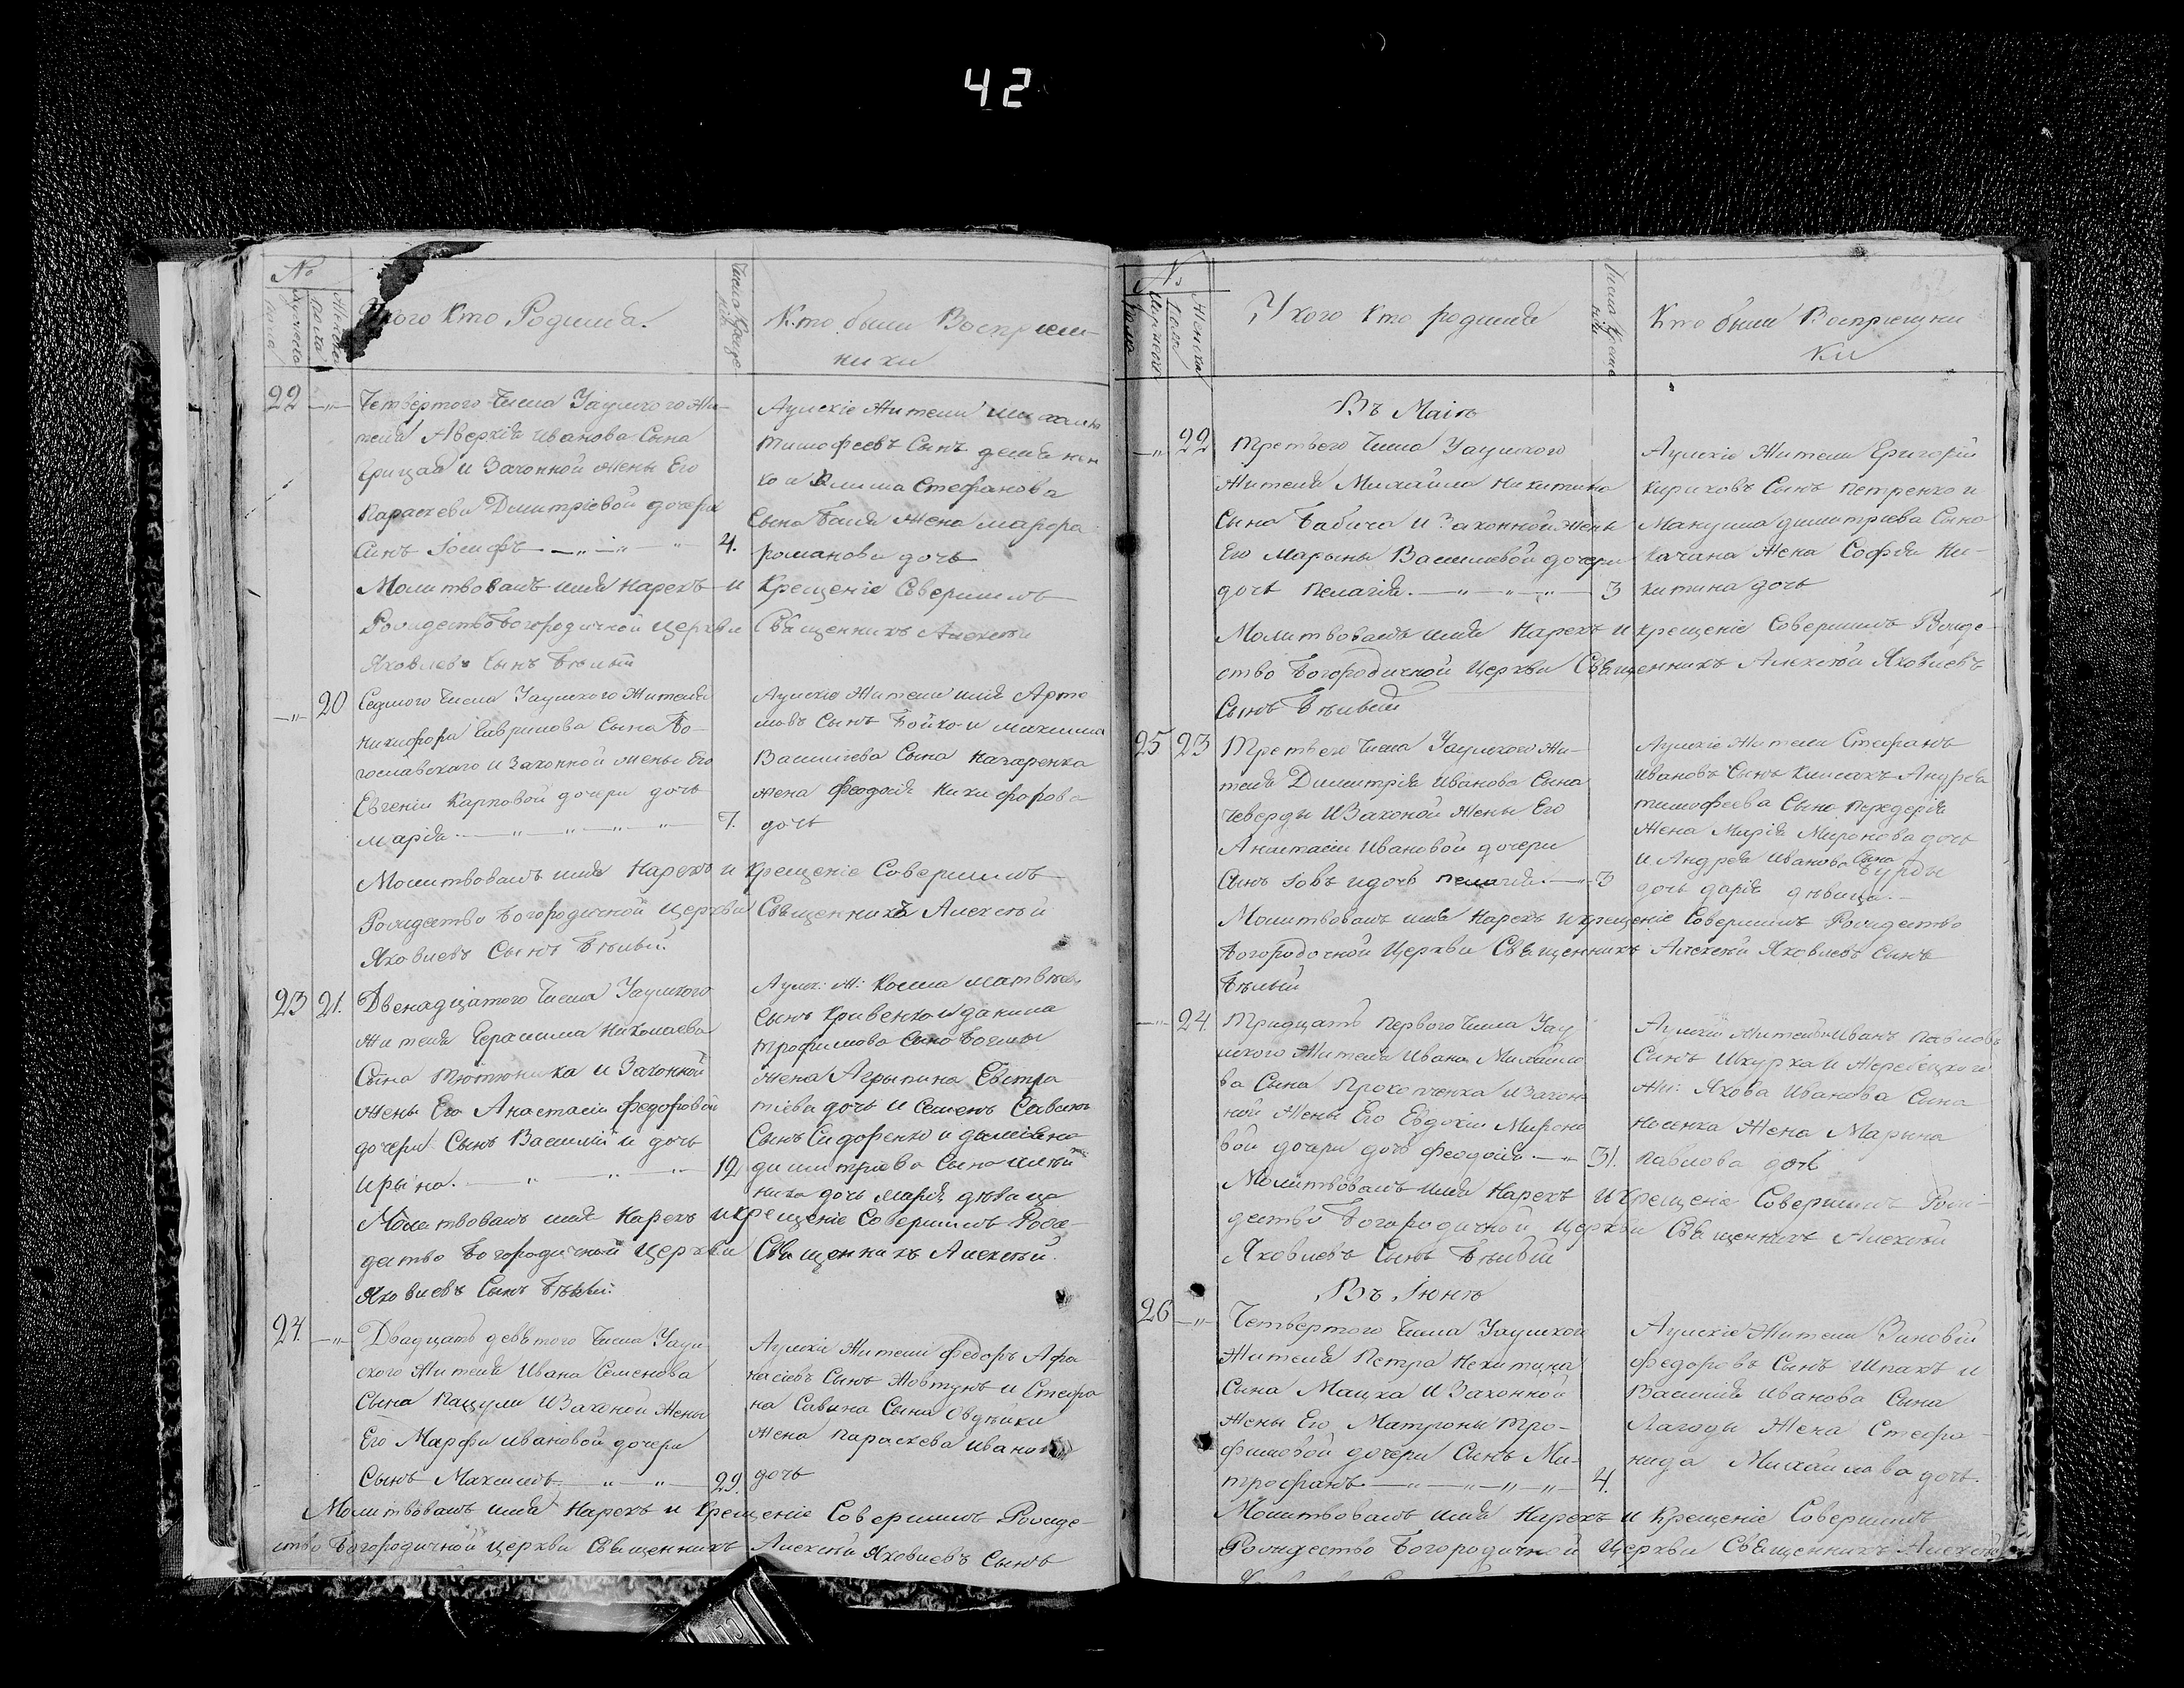 42
№
Мужеска пола
Женска пола
У кого кто Родился.
Число Креще нія
Кто были Воспріем-
ники
22 —„— Четвертого Числа Заумского Жи-
теля Аверкія Иванова Сына
Грицая и Законной Жены Его
Параскевы Димитріевой дочери
Сынъ Іосифъ —„—„—„ 4.
Аумскіе Жители
Тимофеевъ Сынъ
ко и Клима Стефанова
Сына Жена
романова дочь
Молитвовалъ имя Нарекъ и Крещеніе Совершилъ
Рождество Богородичной Церкви Священникъ Алексѣй
Яковлевъ Сынъ Бѣлый
—„— 20 Седмого Числа Заумского Жителя
Никифора Гаврилова Сына Бо-
гославского и Законной жены Его
Евгеніи Карповой дочери дочь
Марія —„—„—„—„ 7.
Аумскіе Жители Илія Арте
мовъ Сынъ Бойко и Максима
Василіева Сына Назаренка
жена Феодосія Никифорова
дочь
Молитвовалъ имя Нарекъ и Крещеніе Совершилъ
Рождество Богородичной Церкви Священникъ Алексѣй
Яковлевъ Сынъ Бѣлый.
23 21. Двенадцатого Числа Заумского
Жителя Герасима Николаева
Сына Тютюника и Законной
жены Его Анастасіи Федоровой
дочери Сынъ Василій и дочь
Ирына. —„—„— 12
Аумск: Ж: Косма Матвѣевъ
Сынъ Кривенко и Данила
Трофимова Сына
Жена Агрыпина Евстра
тіева дочь и Семенъ Савинъ
Сынъ Сидоренко и
димитріева Сына
ника дочь Марія дѣвица
Молитвовалъ имя Нарекъ и Крещеніе Совершилъ Рож
дество Богородичной Церкви Священникъ Алексѣй
Яковлевъ Сынъ Бѣлый.
24. —„— Двадцать девятого Числа Заум
ского Жителя Ивана Семенова
Сына Пацули и Законой Жены
Его Марфы Ивановой дочери
Сынъ Максимъ —„—„— 29.
Аумскіе Жители Федоръ Афа
насіевъ Сынъ Жовтунъ и Стефа
на Савина Сына Овдѣйки
Жена Параскева Иванова
дочь
Молитвовалъ имя Нарекъ и Крещеніе Совершилъ Рожде-
ство Богородичной Церкви Священникъ Алексѣй Яковлевъ Сынъ
№
Мужеска пола
Женска пола
У кого кто родился
Число Креще нія
Кто были Воспріемни
ки
Въ Маіѣ
—„ 22 Третьего Числа Заумского
Жителя Михаила Никитина
Сына Бабича и Законной жены
Его Марыны Василіевой дочери
дочь Пелагія. —„—„—„— 3
Аумскіе Жители Григорій
Кириковъ Сынъ Петренко и
Мануила Димитріева Сына
Качана Жена Софія Ни-
китина дочь
Молитвовалъ имя Нарекъ и Крещеніе Совершилъ Рожде-
ство Богородичной Церкви Священникъ Алексѣй Яковлевъ
Сынъ Бѣлый
25 23 Третьего Числа Заумского Жи-
теля Димитрія Иванова Сына
Чеверды и Законой Жены Его
Анастасіи Ивановой дочери
Сынъ Іовъ и дочь Пелагія. —„ 3
Аумскіе Жители Стефанъ
Ивановъ Сынъ Андрея
Тимофеева Сына Передерія
Жена Марія Миронова дочь
и Андрея Иванова Сына Бурды
дочь Дарія дѣвица. —
Молитвовалъ имя Нарекъ и Крещеніе Совершилъ Рождество
Богородочной Церкви Священникъ Алексѣй Яковлевъ Сынъ
Бѣлый
—„ 24. Тридцать Первого Числа Зау
мского Жителя Ивана Михайло
ва Сына Прокопченка и Закон
ной Жены Его Евдокіи Мироно
вой дочери дочь Феодосія —„ 31.
Аумскій Житель Иванъ Павловъ
Сынъ Шкурка и
Жи: Якова Иванова Сына
Носенка Жена Марына
Павлова дочь
Молитвовалъ имя Нарекъ и Крещеніе Совершилъ Рож-
дество Богородичной Церкви Священникъ Алексѣй
Яковлевъ Сынъ Бѣлый
Въ Іюнѣ
26 —„ Четвертого Числа Заумского
Жителя Петра Никитина
Сына Мацка и Законной
Жены Его Матроны Тро-
фимовой дочери Сынъ Ми-
трофанъ —„—„—„—„— 4.
Аумскіе Жители Зиновій
Федоровъ Сынъ Шпакъ и
Василія Иванова Сына
Лагоды Жена Стефа-
нида Михайлова дочь.
Молитвовалъ имя Нарекъ и Крещеніе Совершилъ
Рождество Богородичной Церкви Священникъ Алексѣй